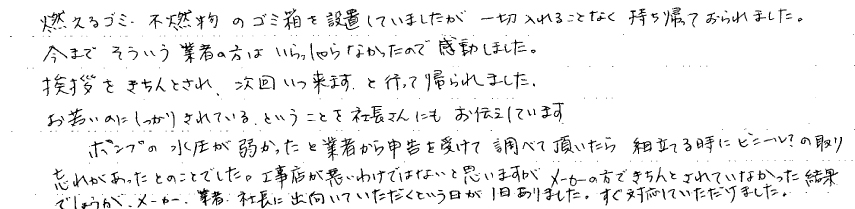 燃えるゴミ・不燃物 のゴミ箱を設置していましたが 一切入れることなく 持ち帰ておられました。
今まで そういう 業者の方は いらっしゃらなかったので 感動しました。
挨拶を きちんとされ、次回いつ来ます。と 行って帰られました。
お若いのに しっかりされている、ということを 社長さんにも お伝えしています
ポンプの 水圧が 弱かったと業者から申告を受けて 調べて頂いたら 組立てる時にビニール?の取り
忘れがあったとのことでした。工事店が悪いわけではないと思いますが メーカーの方できちんとされていなかった結果
でしょうが、メーカー、業者、社長に出向いていただくという日が 1日ありました。すぐ対応していただけました。